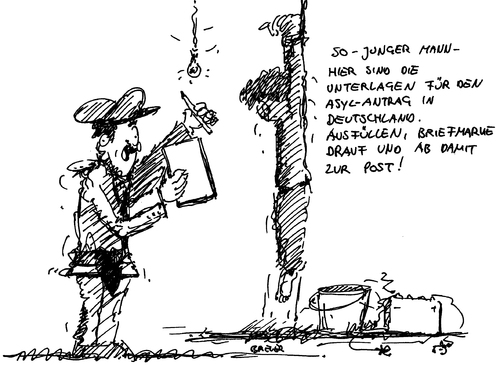 SO - JUNGER MANN -
HIER SIND DIE
UNTERLAGEN FÜR DEN
ASYL-ANTRAG IN
DEUTSCHLAND.
AUSFÜLLEN, BRIEFMARKE
DRAUF UND AB DAMIT
ZUR POST!